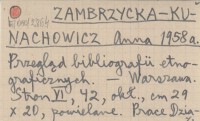 ZAMBRZYCKA-KU-
NACHOWICZ Anna 1958a.
Przegląd bibliografii etno-
graficznych. — Warszawa.
Stron VI, 42, okł., cm 29
x 20, powielane. Prace Dzia-